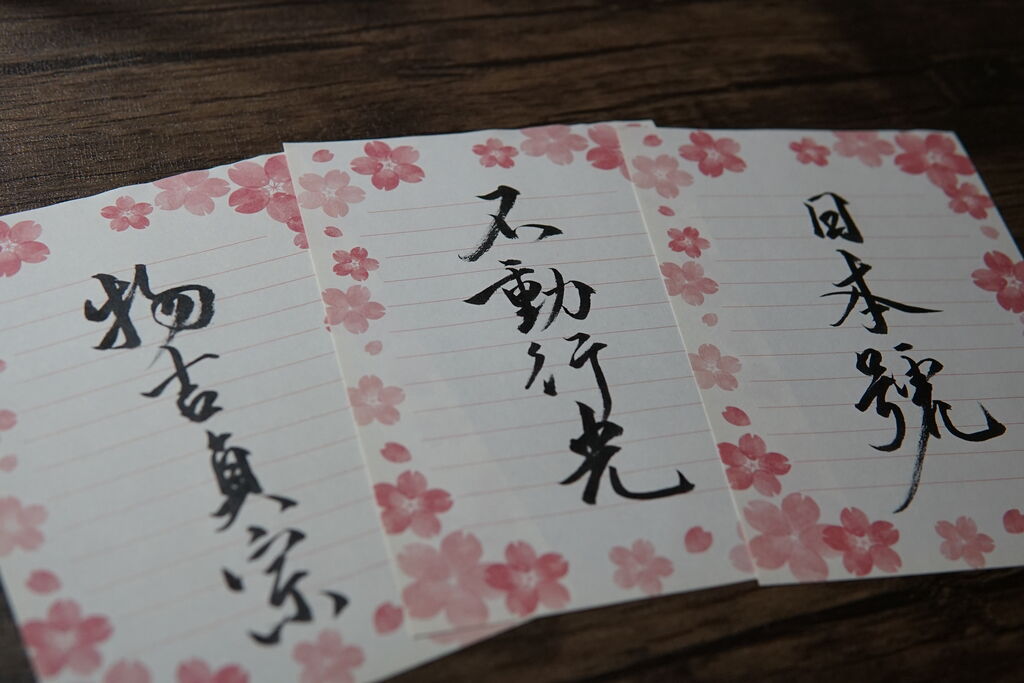 物吉貞宗
不動行光
日本號